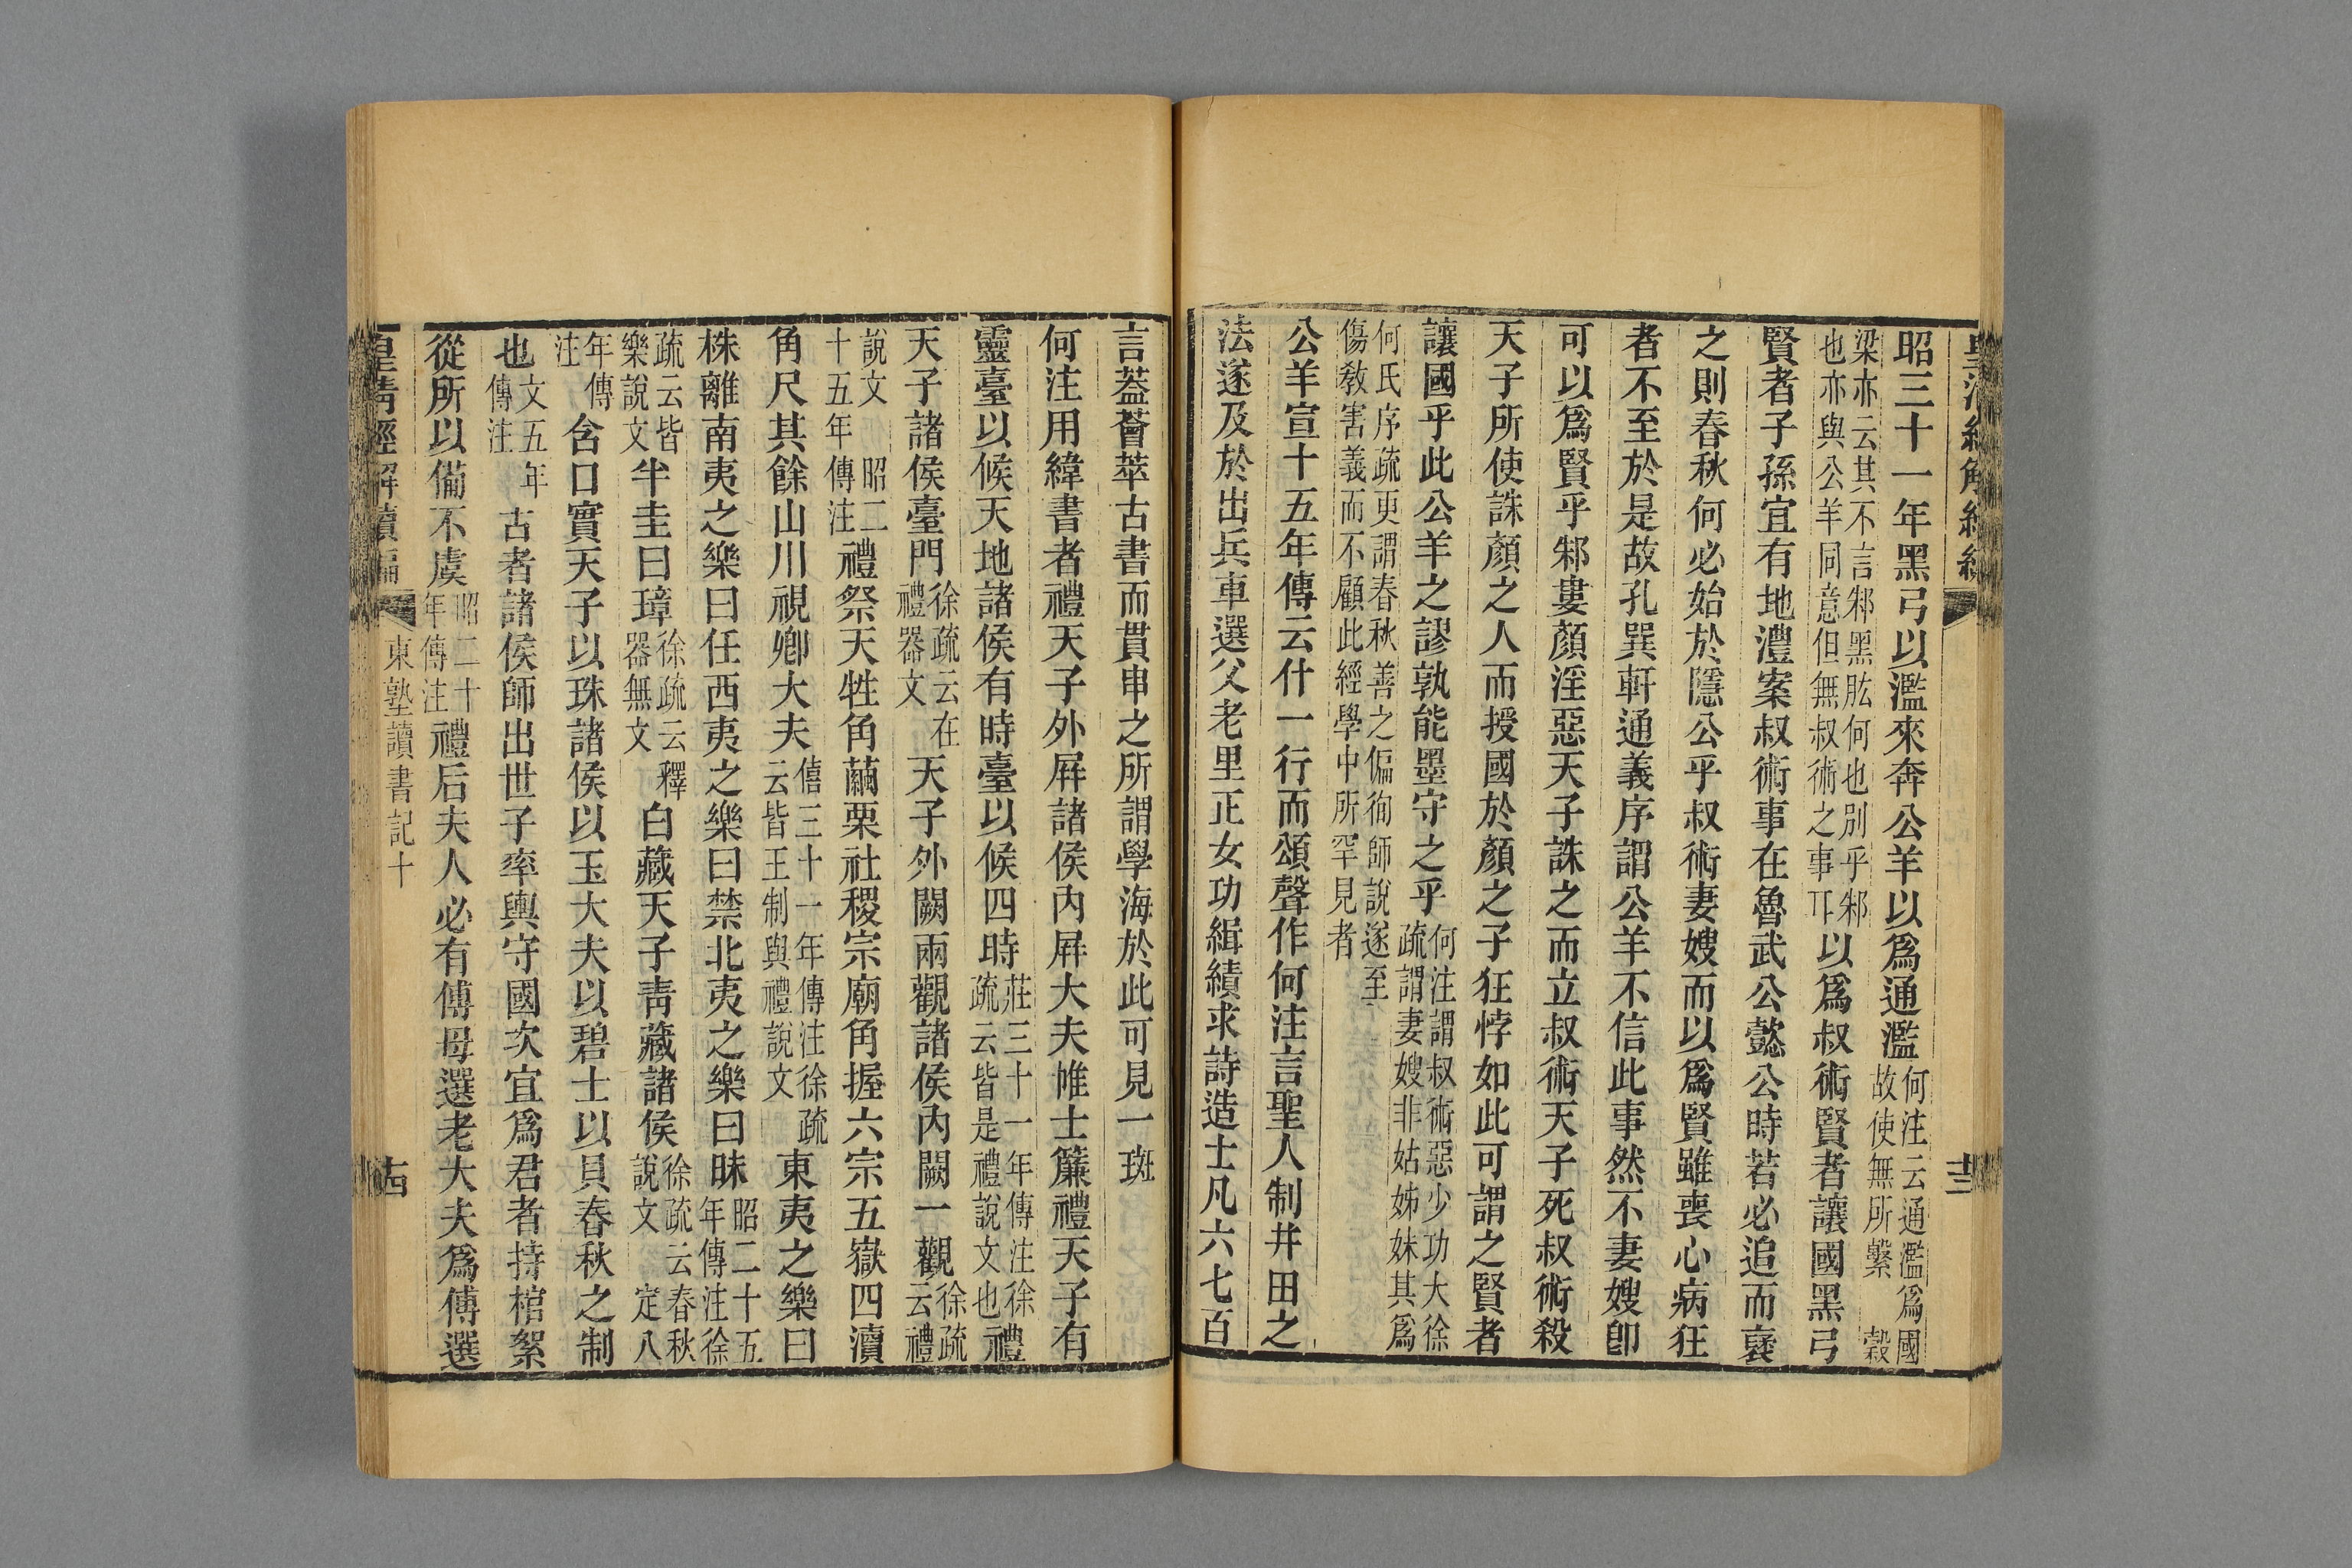 昭三十一年黑弓以濫來奔公羊以爲通濫何注云通濫爲國故使無所繫 穀
梁亦云其不言邾黑肱何也別乎邾也亦與公羊同意但無叔術之事耳以爲叔術賢者讓國黑弓
賢者子孫宜有地澧案叔術事在魯武公懿公時若必追而襃
之則春秋何必始於隱公乎叔術妻嫂而以爲賢雖喪心病狂
者不至於是故孔巽軒通義序謂公羊不信此事然不妻嫂卽
可以爲賢乎邾婁顏淫惡天子誅之而立叔術天子死叔術殺
天子所使誅顏之人而授國於顏之子狂悖如此可謂之賢者
讓國乎此公羊之謬孰能墨守之乎何注謂叔術惡少功大徐疏謂妻嫂非姑姊妹其爲
何氏序疏更謂春秋善之偏徇師說遂至傷敎害義而不顧此經學中所罕見者
公羊宣十五年傳云什一行而頌聲作何注言聖人制井田之
法遂及於出兵車選父老里正女功緝績求詩造士凡六七百
言葢薈萃古書而貫串之所謂學海於此可見一斑
何注用緯書者禮天子外屛諸侯內屛大夫帷士簾禮天子有
靈臺以候天地諸侯有時臺以候四時莊三十一年傳注徐疏云皆是禮說文也禮
天子諸侯臺門徐疏云在禮器文天子外闕兩觀諸侯內闕一觀徐疏云禮
說文 昭二十五年傳注禮祭天牲角繭栗社稷宗廟角握六宗五嶽四瀆
角尺其餘山川視卿大夫僖三十一年傳注徐疏云皆王制與禮說文東夷之樂曰
株離南夷之樂曰任西夷之樂曰禁北夷之樂曰昧昭二十五年傳注徐
疏云皆樂說文半圭曰璋徐疏云釋器無文白藏天子靑藏諸侯徐疏云春秋說文 定八
年傳注含口實天子以珠諸侯以玉大夫以碧士以貝春秋之制
也文五年傳注古者諸侯師出世子率輿守國次宜爲君者持棺絮
從所以備不虞昭二十年傳注禮后夫人必有傅母選老大夫爲傅選
皇淸經解續編
東塾讀書記十
十四